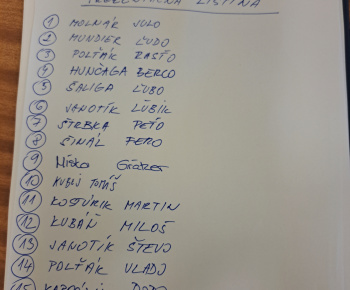 PREZENČNÁ LISTINA
1 MOLNÁR JULO
2 MUNDIER ĽUDO
3 POLŤÁK RASŤO
4 HUNČAGA BERCO
5 ŠALIGA ĽUBO
6 JANOTÍK ĽUBIK
7 ŠTRBKA PEŤO
8 ŠINÁL FERO
9 Misko
10 KUBIŠ TOMÁŠ
11 KOSTÚRIK MARTIN
12 KUBÁŇ MILOŠ
13 JANOTÍK ŠTEVO
14 POLŤÁK VLADO
15 DODO